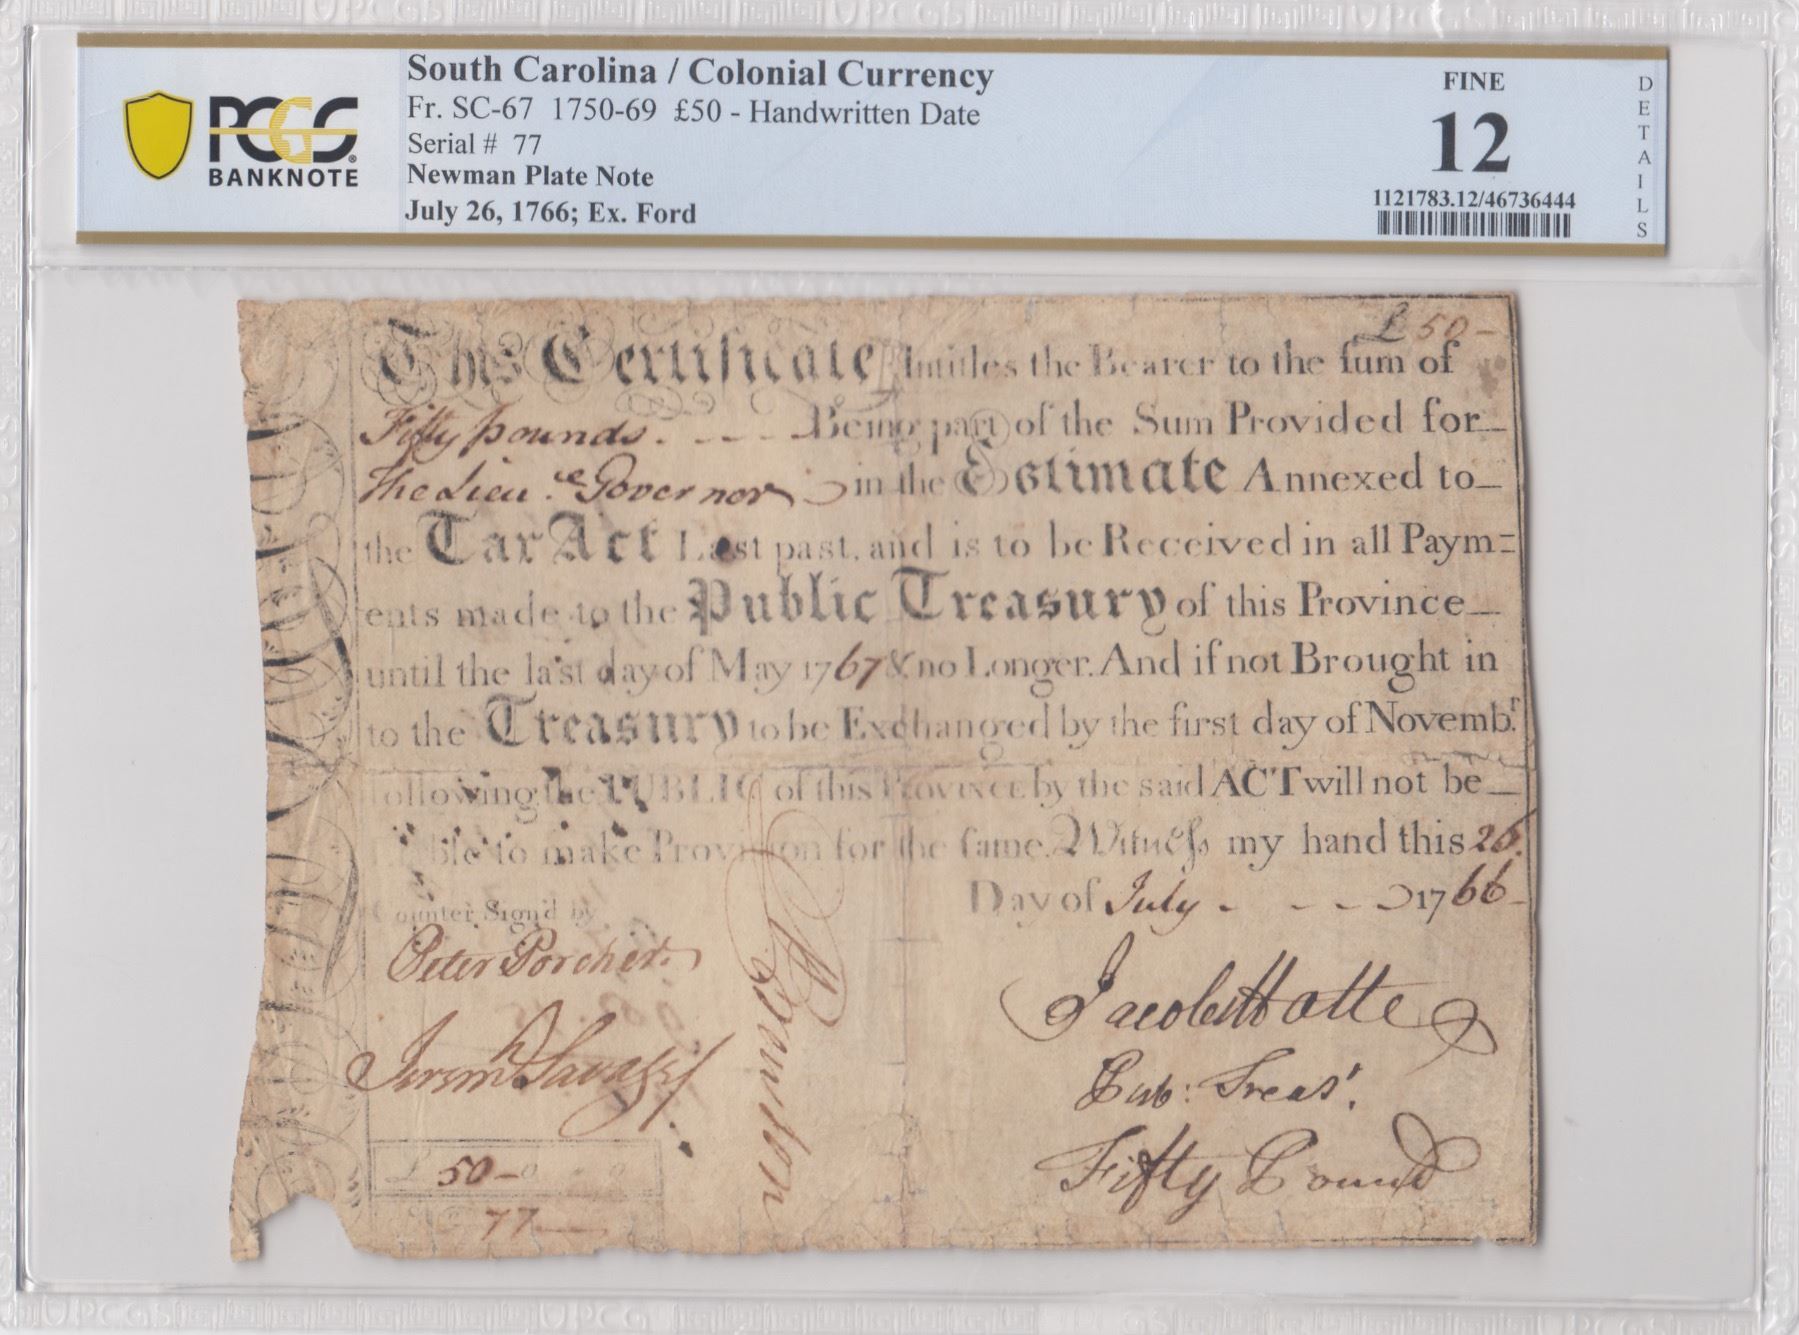 South Carolina / Colonial Currency
Fr. SC-67 1750-69 £50 - Handwritten Date
Serial # 77
Newman Plate Note
July 26, 1766; Ex. Ford
PCGS
BANKNOTE
FINE
12
1121783.12/46736444
DETAILS
£ 50-
This Certificate Intitles the Bearer to the sum of
Fifty pounds. - - - - Being part of the Sum Provided for
The Lieu.ᵉ Governor in the Estimate Annexed to
the Tax Act Last past, and is to be Received in all Paym=
ents made to the Public Treasury of this Province
until the last day of May 1767 & no Longer. And if not Brought in
to the Treasury to be Exchanged by the first day of Novembʳ
following the PUBLIC of this PROVINCE by the said ACT will not be
Liable to make Provision for the same. Witness my hand this 26.
Day of July - - - - 1766
Counter Sign'd by
Peter Porcher
Jeremʰ Savage
Jacob Motte
Pub: Treasʳ.
Fifty Pound
£ 50-0
77